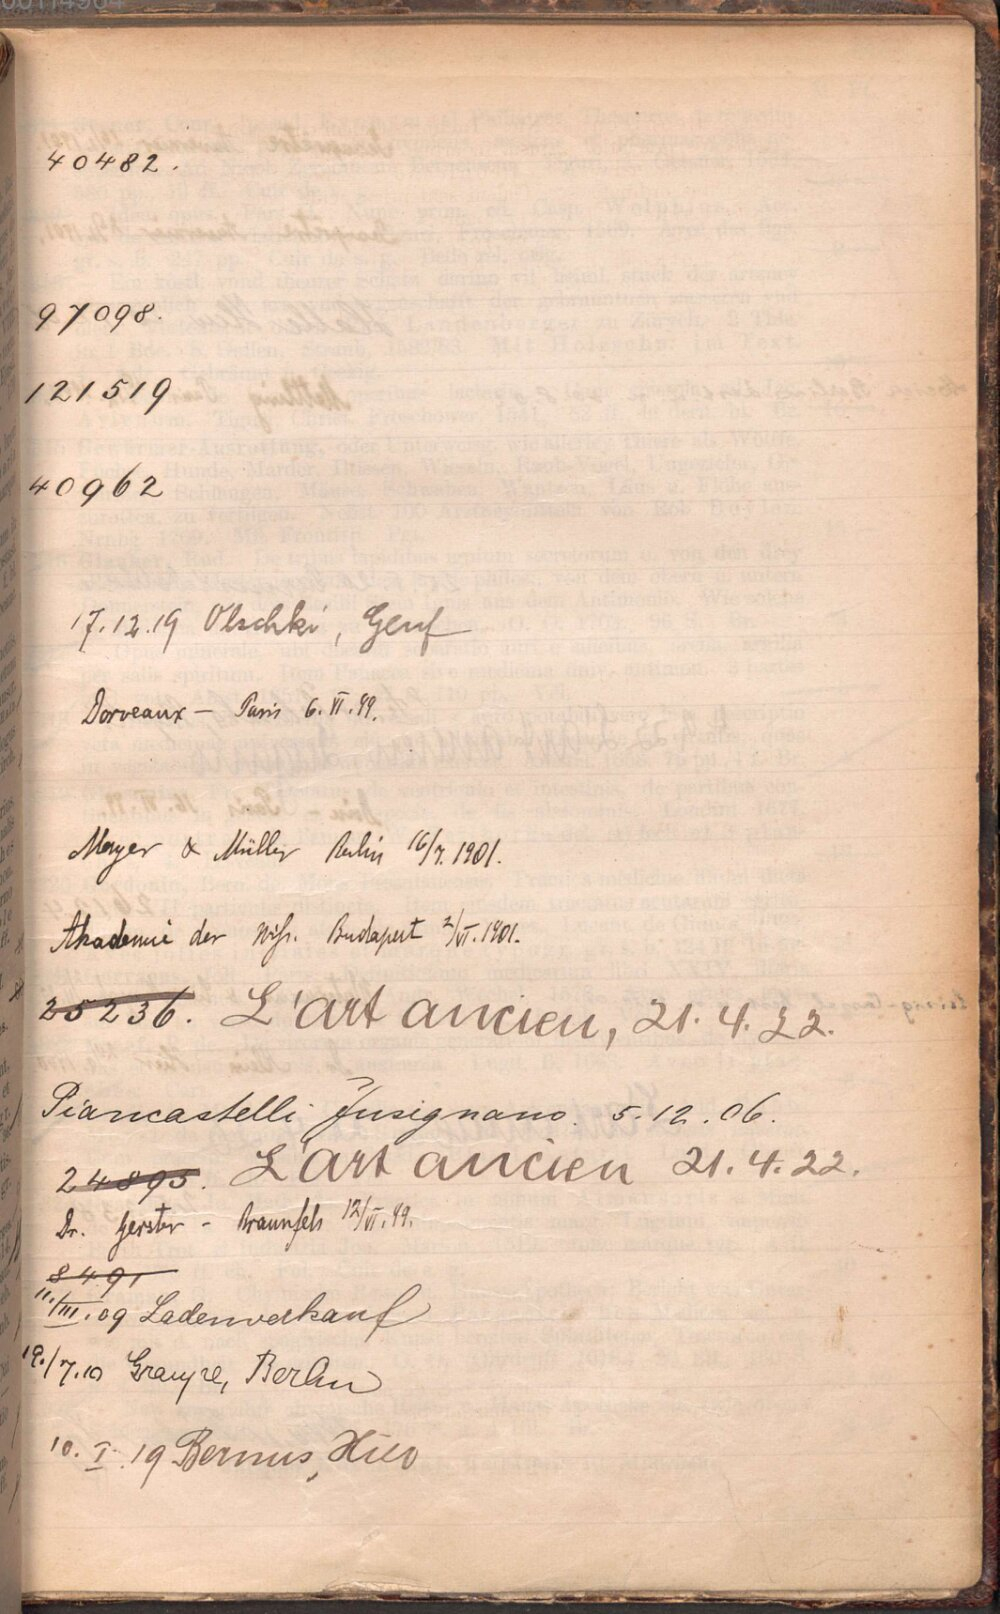 40482.
97098.
121519
40962
17.12.19 Olschki, Genf
Dorveaux – Paris 6.VI.99.
Mayer & Müller Berlin 16/7.1901.
Akademie der Wiss. Budapest 2/VI.1901.
25236. L'art ancien, 21.4.22.
Piancastelli Fusignano. 5.12.06.
24895. L'art ancien 21.4.22.
Dr. Gerster – Braunfels 12/VI.99.
8491
11./III.09 Ladenverkauf
19./7.10 Graupe, Berlin
10.I.19 Bernus,